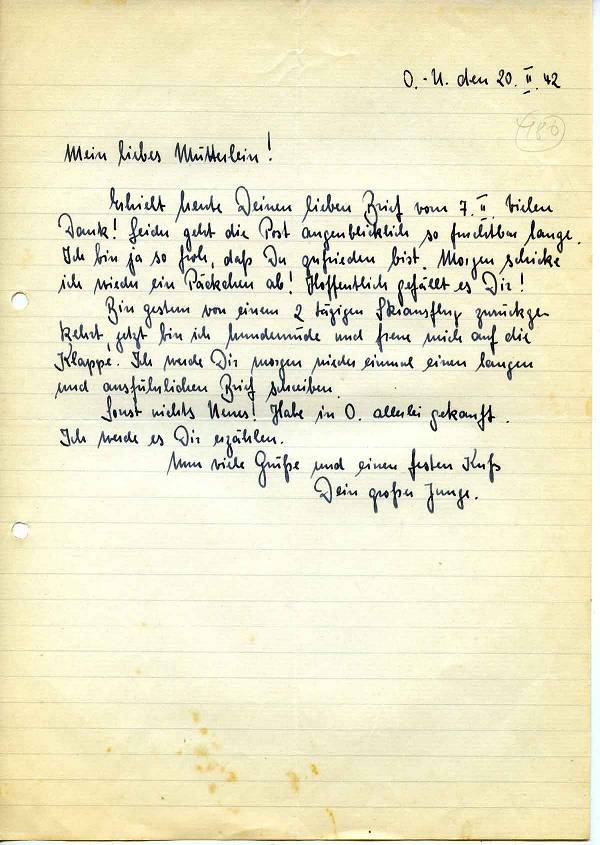 O.-U. den 20. II. 42
180
Mein liebes Mütterlein!
Erhielt heute Deinen lieben Brief vom 7. II. Vielen
Dank! Leider geht die Post augenblicklich so furchtbar lange.
Ich bin ja so froh, daß Du zufrieden bist. Morgen schicke
ich wieder ein Päckchen ab! Hoffentlich gefällt es Dir!
Bin gestern von einem 2 tägigen Skiausflug zurückge-
kehrt, jetzt bin ich hundemüde und freue mich auf die
Klappe. Ich werde Dir morgen wieder einmal einen langen
und ausführlichen Brief schreiben.
Sonst nichts Neues! Habe in O. allerlei gekauft.
Ich werde es Dir erzählen.
Nun viele Grüße und einen festen Kuß
Dein großer Junge.